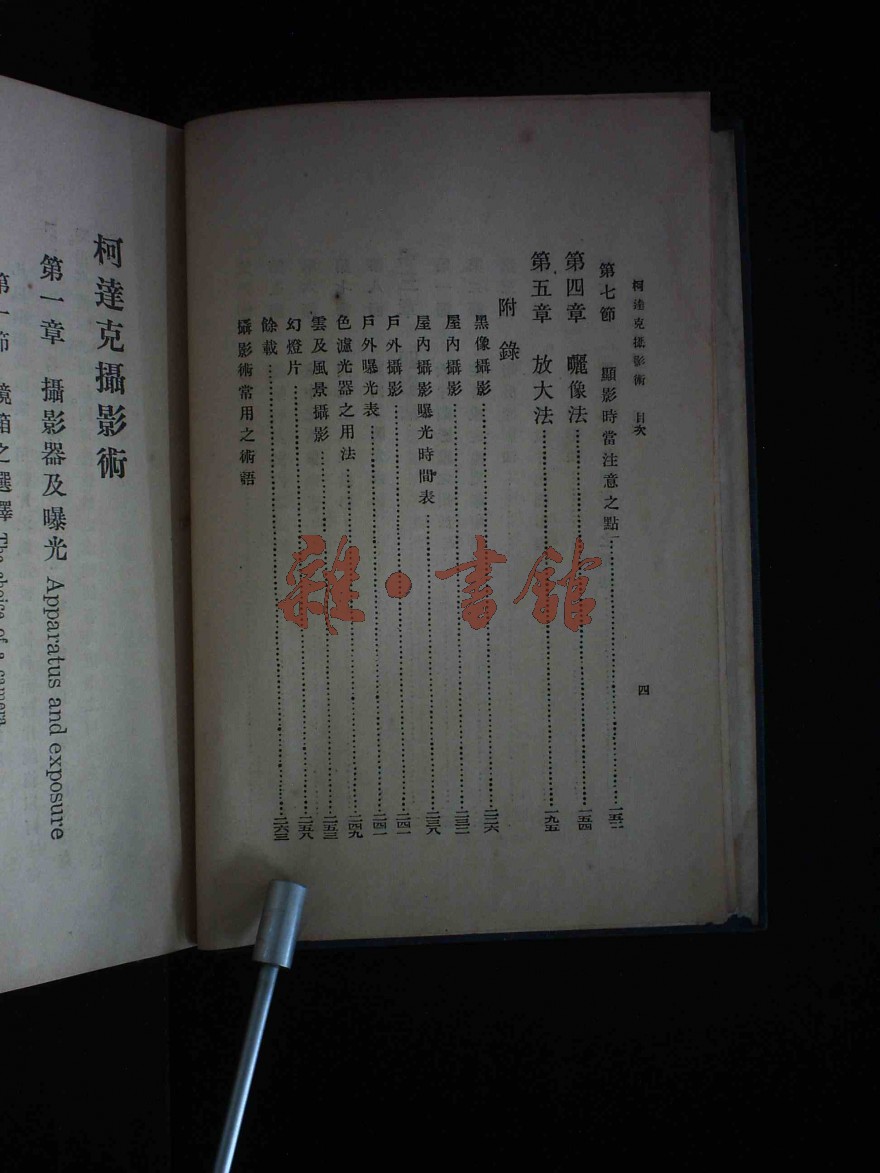 柯達克攝影術 目次
四
第七節 顯影時當注意之點 一五二
第四章 曬像法 一五四
第五章 放大法 一九五
附錄
黑像攝影 二二六
屋內攝影 二三二
屋內攝影曝光時間表 二三八
戶外攝影 二四一
戶外曝光表 二四二
色濾光器之用法 二四九
雲及風景攝影 二五三
幻燈片 二五八
餘載 二六三
攝影術常用之術語
柯達克攝影術
第一章 攝影器及曝光 Apparatus and exposure
第一節 鏡箱之選擇 The choise of a camera
雜·書館